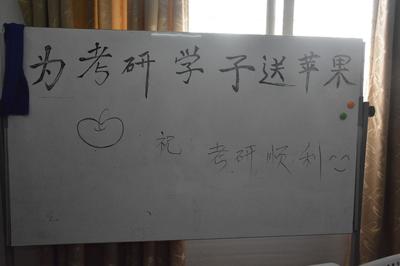 为考研学子送苹果
祝 考研顺利